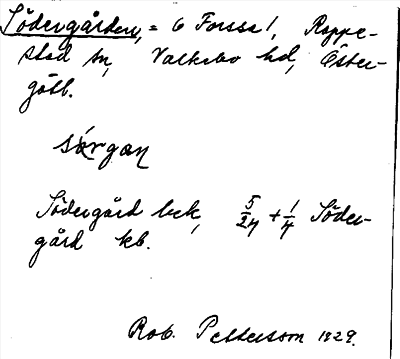 Södergården, = 6 Forssa!, Rappe-
stad sn, Valkebo hd, Öster-
götl.
sörgan
Södergård bek, 5/24 + 1/4 Söder-
gård kb.
Rob. Pettersson 1929.